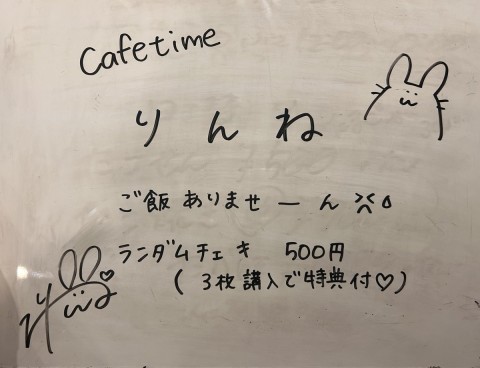 Cafetime
りんね
ご飯ありませーん
ランダムチェキ 500円
(3枚講入で特典付♡)